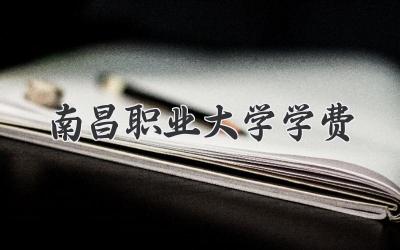 南昌职业大学学费